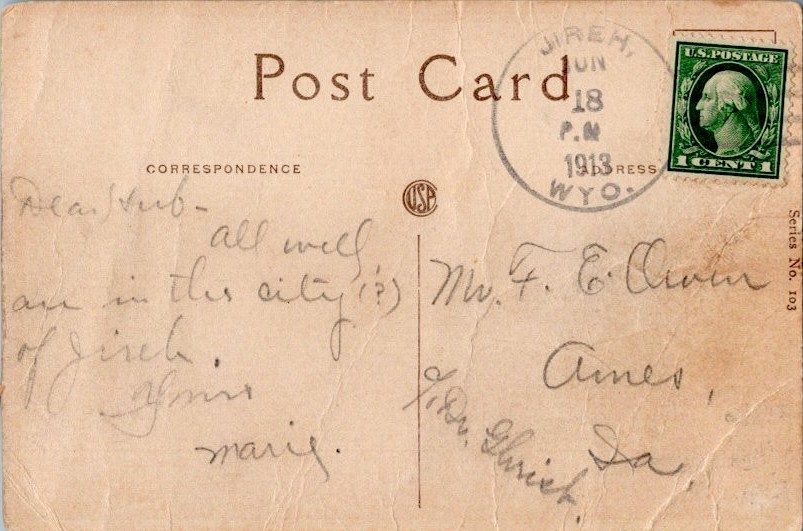 Post Card
JIREH,
JUN
18
P.M
1913
WYO.
U.S. POSTAGE
1 CENT 1
CORRESPONDENCE
ADDRESS
USP
Series No. 103
Dear Hub-
All well,
are in the city (?)
of Jireh.
Yours
Marie.
Mr. F. E. Owen
Ames,
Ia.
c/o Dr. Ghrist.